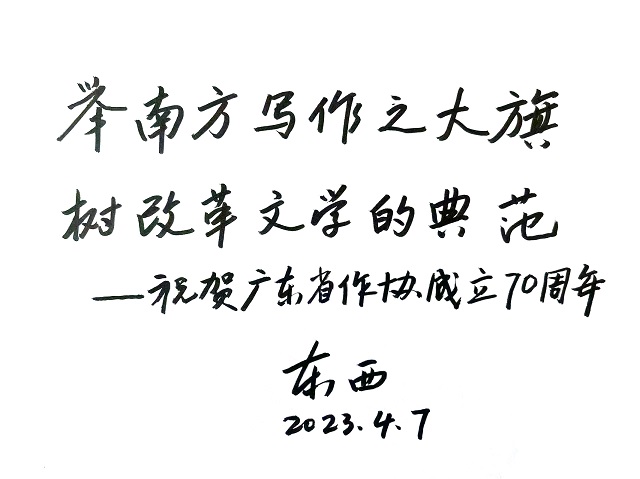 举南方写作之大旗
树改革文学的典范
——祝贺广东省作协成立70周年
东西
2023.4.7